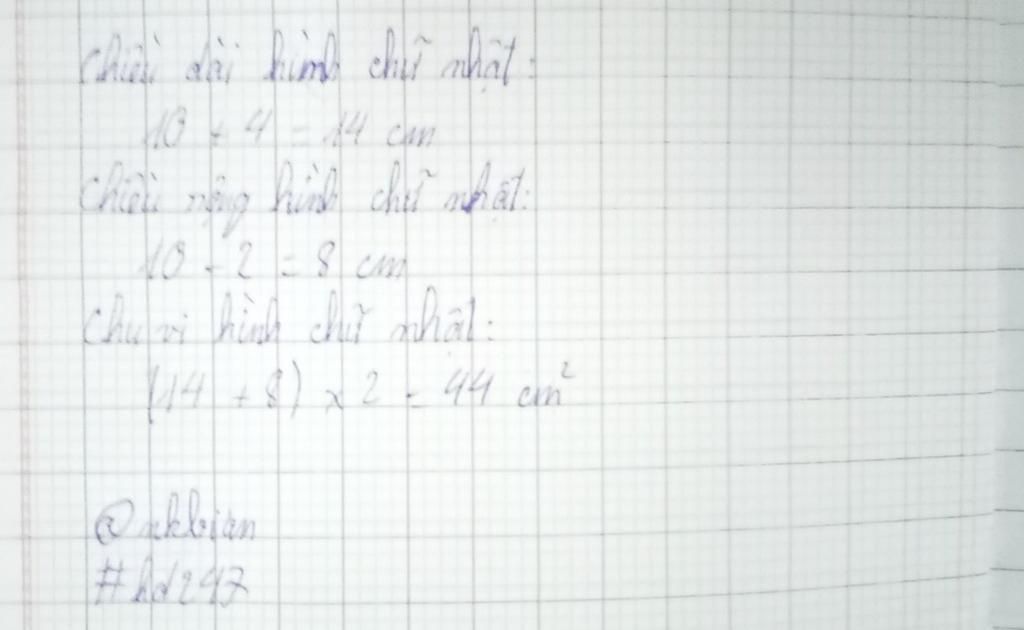 Chiều dài hình chữ nhật:
10 + 4 = 14 cm
Chiều rộng hình chữ nhật:
10 - 2 = 8 cm
Chu vi hình chữ nhật:
(14 + 8) x 2 = 44 cm²
@nkbian
#hd247